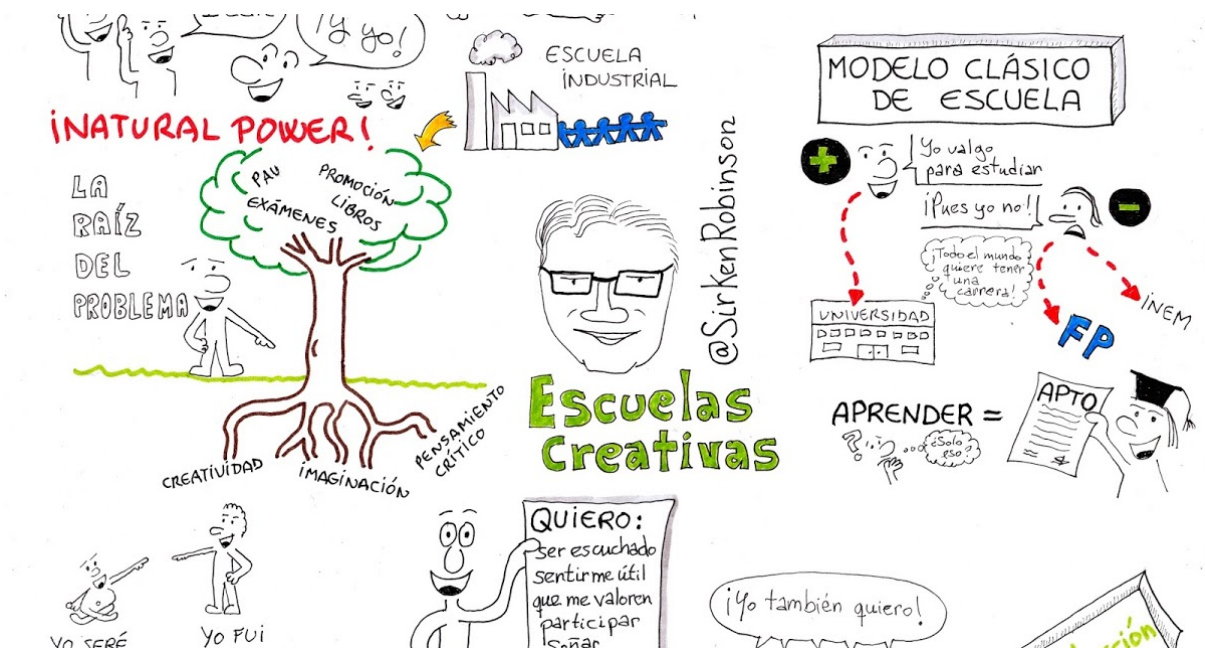 ¡Y yo!
ESCUELA
INDUSTRIAL
¡NATURAL POWER!
LA
RAÍZ
DEL
PROBLEMA
PAU
EXÁMENES
PROMOCIÓN
LIBROS
CREATIVIDAD
IMAGINACIÓN
PENSAMIENTO
CRÍTICO
@SirKenRobinson
Escuelas
Creativas
MODELO CLÁSICO
DE ESCUELA
+
Yo valgo
para estudiar
¡Pues yo no!
-
¡Todo el mundo
quiere tener
una
carrera!
UNIVERSIDAD
FP
INEM
APRENDER =
?
¿Solo
eso?
APTO
YO SERÉ
YO FUI
QUIERO:
ser escuchado
sentirme útil
que me valoren
participar
Soñar
¡Yo también quiero!